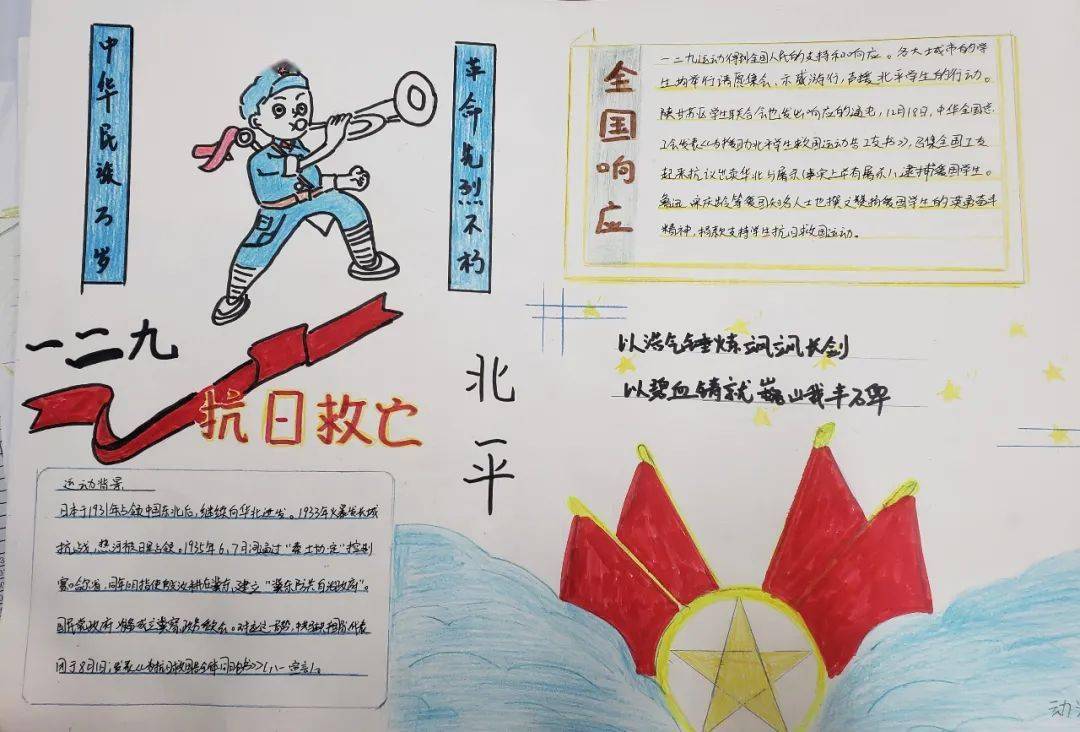 中华民族万岁
革命先烈不朽
一二九
抗日救亡
北平
运动背景
日本于1931年占领中国东北后,继续向华北进发。1933年火暴发长城
抗战,热河被日军占领。1935年6、7月间通过“秦土协定”控制
察哈尔省,同年
指使殷汝耕在冀东建立“冀东防共自治政府”。
国民党政府
冀察政务委员会。对
代表
团于8月1日发表《为抗日救国告全体同胞书》(八一宣言)。
全国响应
一二九运动得到全国人民的支持和响应。各大城市的学
生均举行请愿集会、示威游行,声援北平学生的行动。
陕甘苏区学生联合会也发出响应的通电,12月18日,中华全国总
工会发表《为援助北平学生救国运动告工友书》,号集全国工友
起来抗议出卖华北与屠杀(事实上没有屠杀)、逮捕爱国学生。
鲁迅、宋庆龄等爱国知名人士也撰文赞扬爱国学生的英勇奋斗
精神,捐款支持学生抗日救国运动。
以浩气锤炼飒飒长剑
以碧血铸就巍山我丰碑